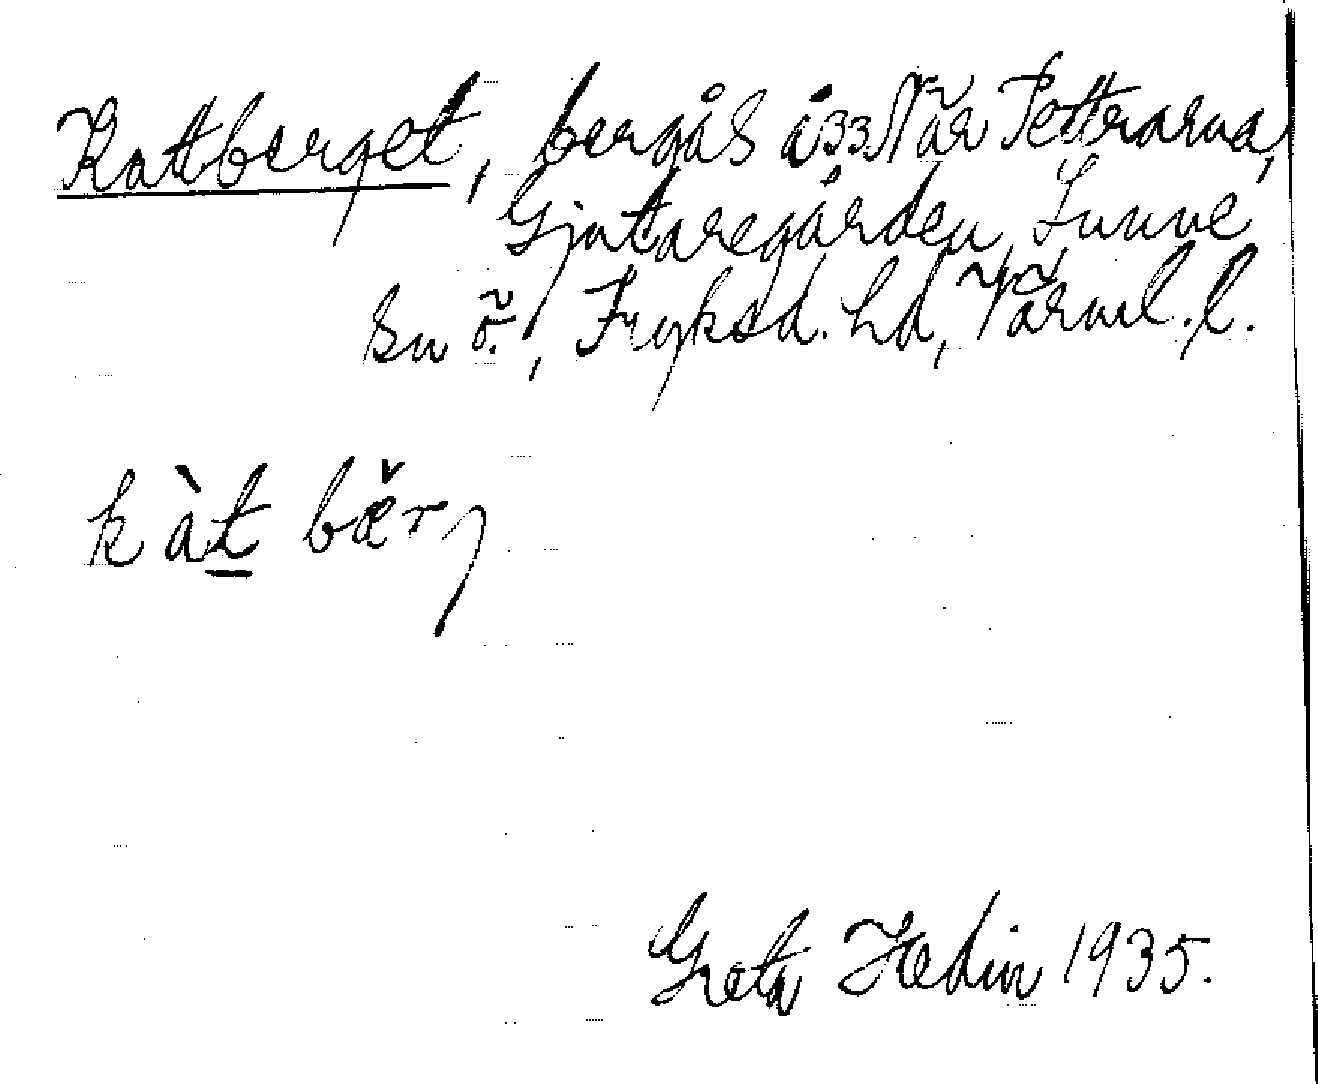 Kattberget, bergås å 33 När Pettrarna,
Gjutaregården, Sunne
sn ö., Fryksd. hd, Värml. l.
kàt bær
Greta Hedin 1935.